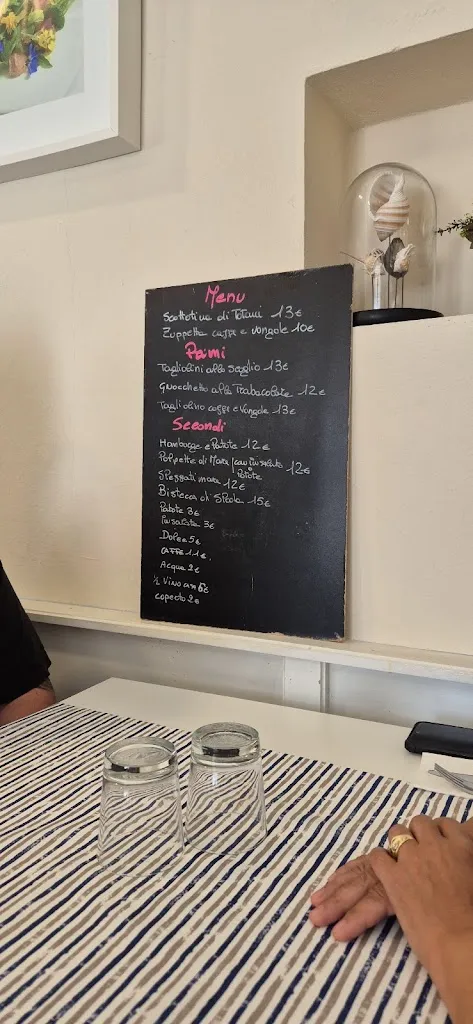 Menu
Scottotina di Totani 13€
Zuppetta cozze e vongole 10€
Primi
Tagliolini allo scoglio 13€
Gnocchetto alla Trabacolata 12€
Tagliolino cozze e vongole 13€
Secondi
Hamburge e Patate 12€
Polpette di Mara / con insalata 12€
Patate
Spezzati mara 12€
Bistecca di Spada 15€
Patate 3€
Insalata 3€
Dolce 5€
Caffè 1€
Acqua 2€
½ Vino 6€
Coperto 2€